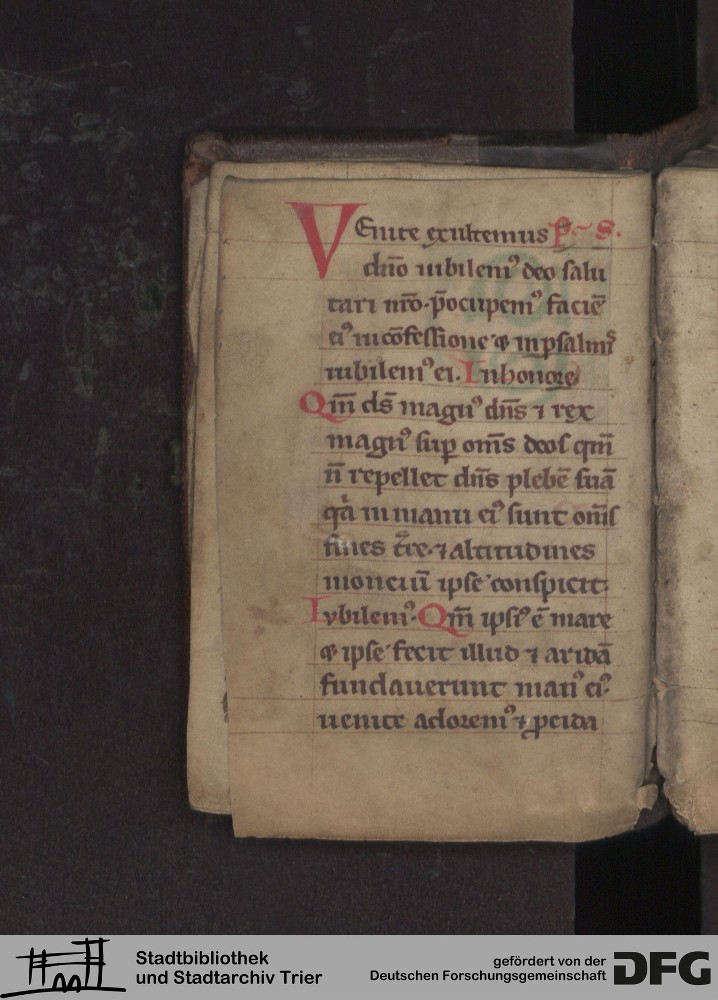 VEnite exultemus ps.
dn̄o iubilemꝰ deo salu
tari nr̄o. p̄ocupemꝰ faciē
eiꝰ in cōfessione ⁊ in psalmꝭ
iubilemꝰ ei. In honore
Qm̄ ds̄ magnꝰ dn̄s ⁊ rex
magnꝰ suꝑ om̄s deos qm̄
n̄ repellet dn̄s plebē suā
qͣ in manu eiꝰ sunt om̄s
fines t̄re. ⁊ altitudines
montiū ipse conspicit.
Iubilemꝰ. Qm̄ ipsiꝰ ē mare
⁊ ipse fecit illud ⁊ aridā
fundauerunt manꝰ eiꝰ.
uenite adoremꝰ ⁊ ꝓcida
Stadtbibliothek
und Stadtarchiv Trier
gefördert von der
Deutschen Forschungsgemeinschaft
DFG